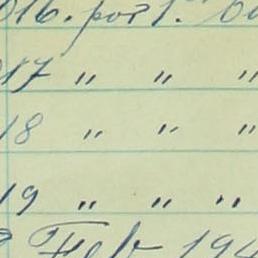 016. port.
17 " " "
18 " " "
19 " " "
Feb 194